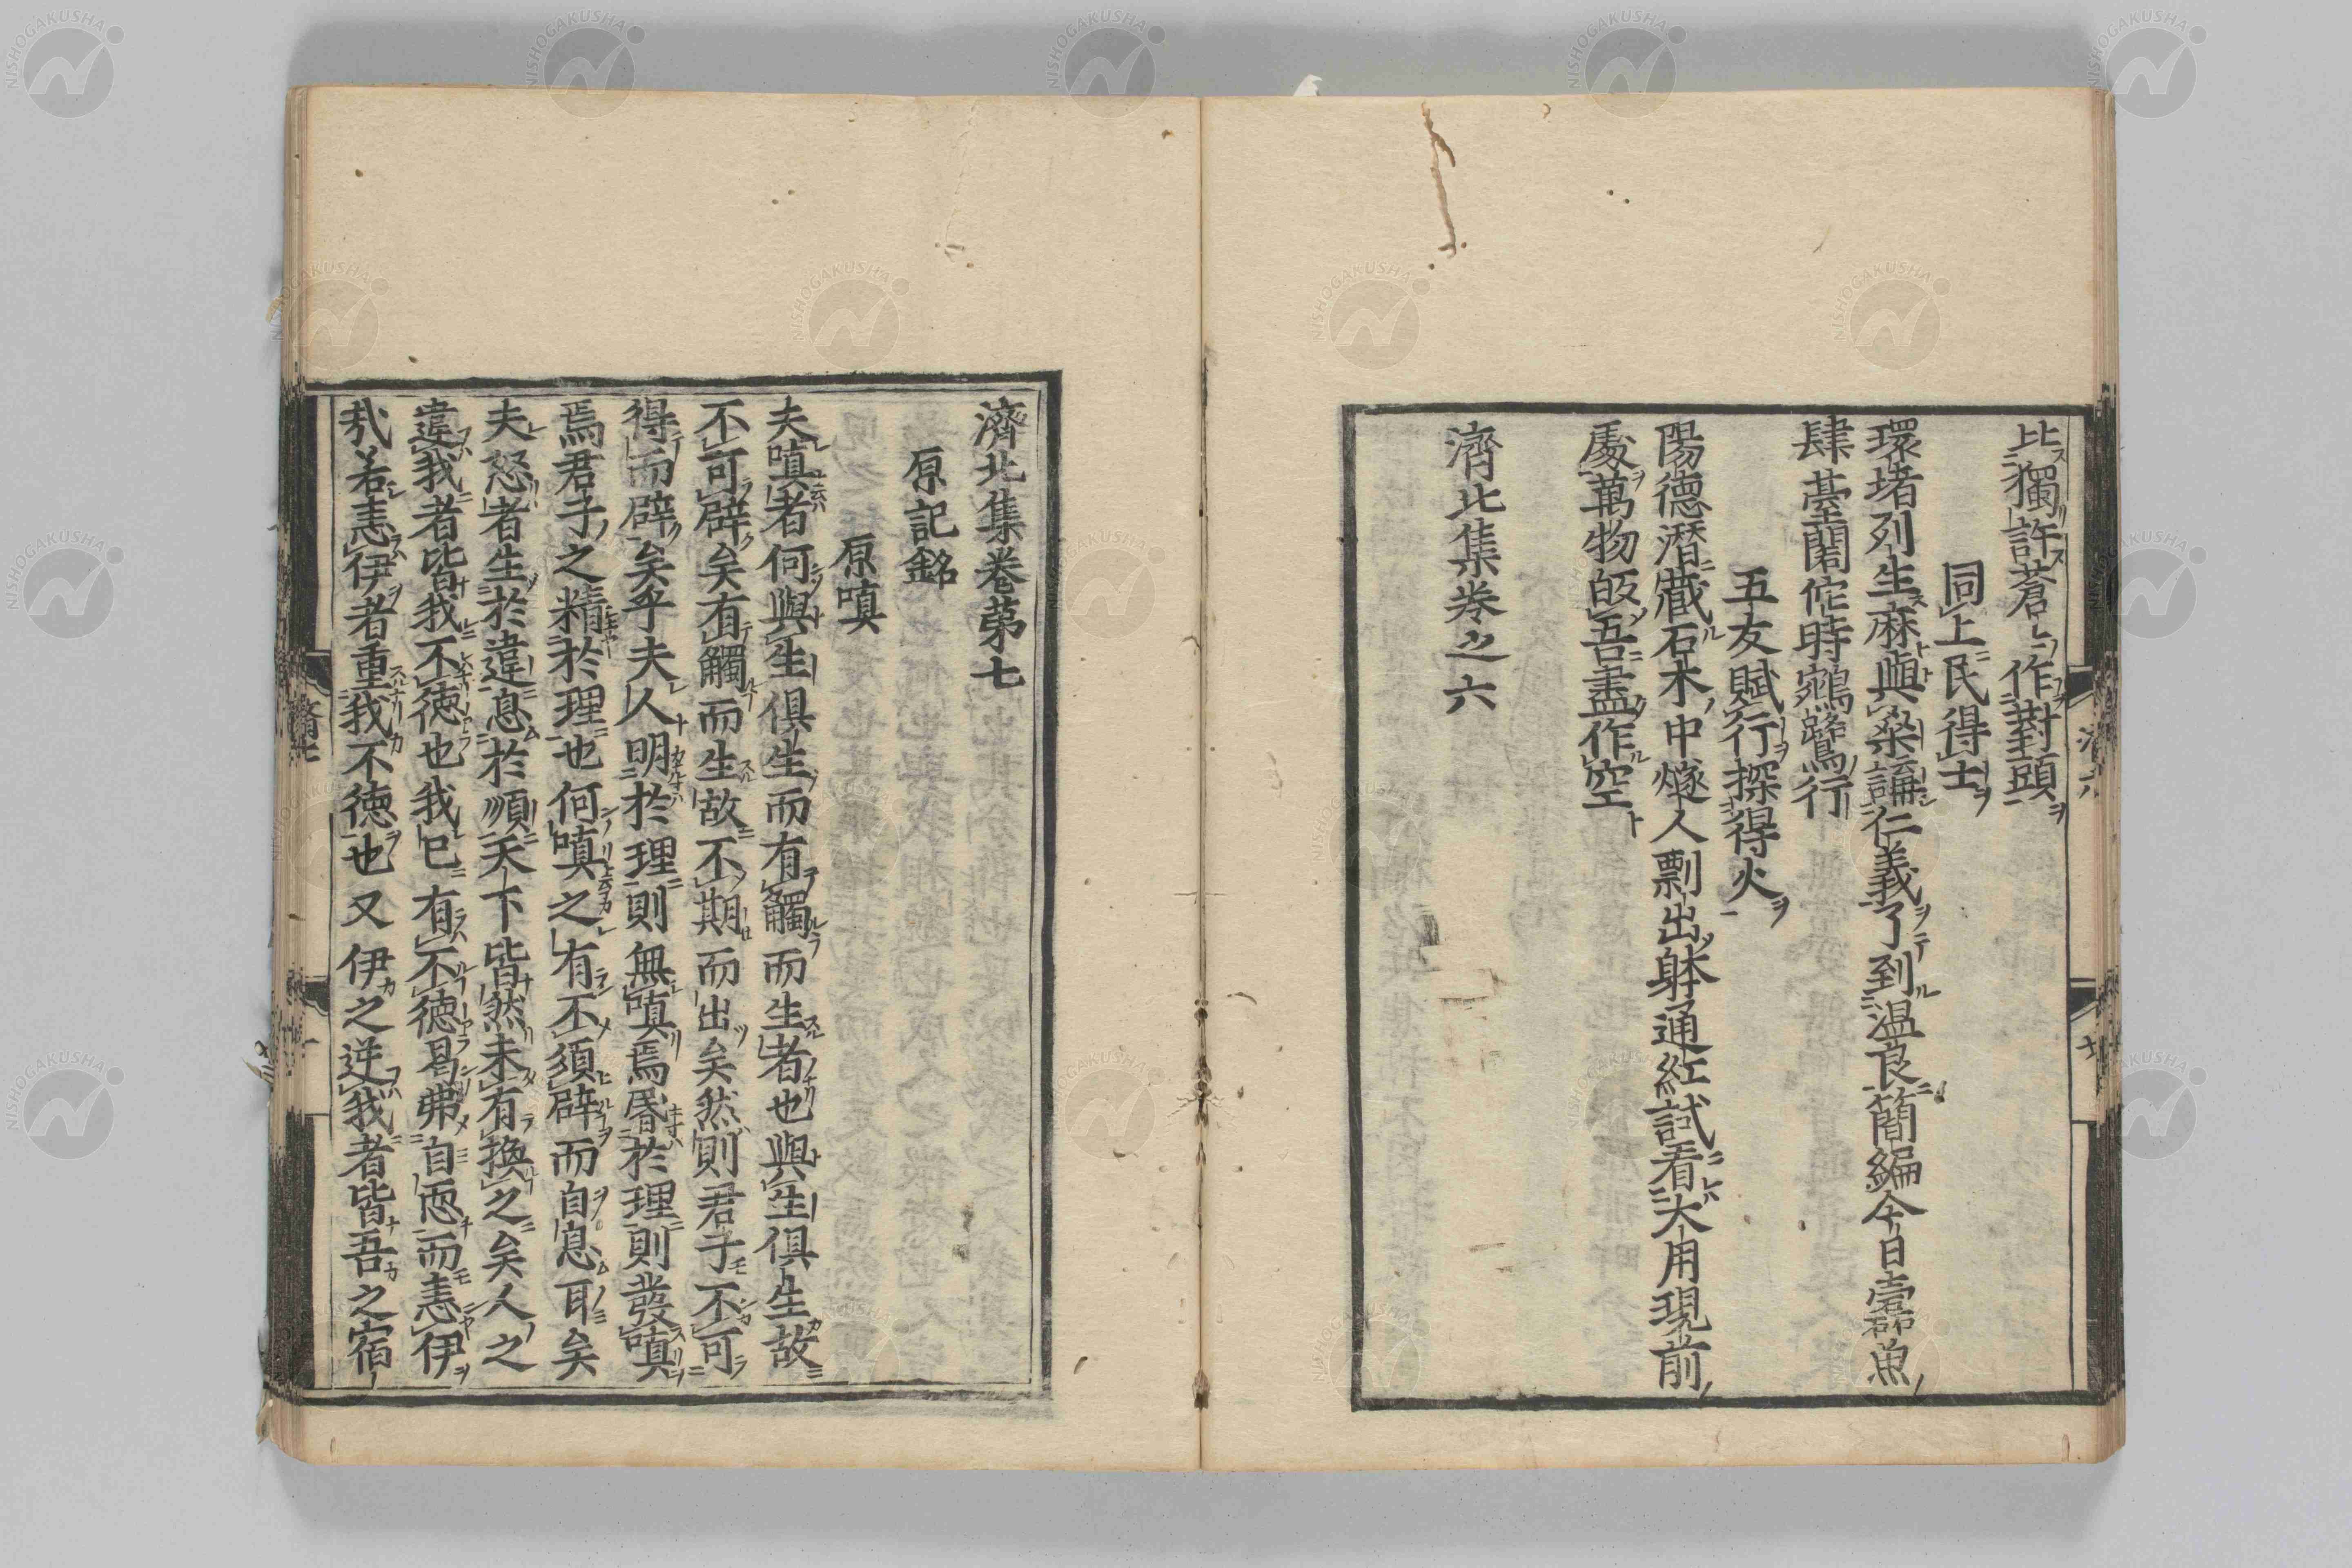 比獨許蒼〻作對頭
同上民得士
環堵列生麻與桑論仁義了到溫良簡編今日蠹魚
肆臺閣佗時鵷鷺行
五友賦行探得火
陽德潛藏石木中燧人剽出躰通紅試看大用現前
處萬物皈吾盡作空
濟北集卷之六
濟北集卷第七
原記銘
原嗔
夫嗔者何與生俱生而有觸而生者也與生俱生故
不可辟矣有觸而生故不期而出矣然則君子不可
得而辟矣乎夫人明於理則無嗔焉昬於理則發嗔
焉君子之精於理也何嗔之有不須辟而自息耳矣
夫怒者生於違息於順天下皆然未有換之矣人之
違我者皆我不德也我已有不德曷弗自恧而恚伊
哉若恚伊者重我不德也又伊之逆我者皆吾之宿
NISHOGAKUSHA